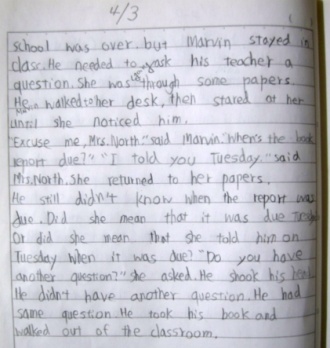 4/3
school was over. but Marvin stayed in
clasc. He needed to ask his teacher a
question. She was through some papers.
He walked to her desk, then stared at her
until she noticed him.
"Excuse me, Mrs. North" said Marvin. "When's the book
report due?" "I told you Tuesday." said
Mrs. North. She returned to her papers.
He still didn't know when the report was
due. Did she mean that it was due
Or did she mean that she told him on
Tuesday when it was due? "Do you have
another question?" she asked. He shook his head.
He didn't have another question. He had
same question. He took his book and
walked out of the classroom.